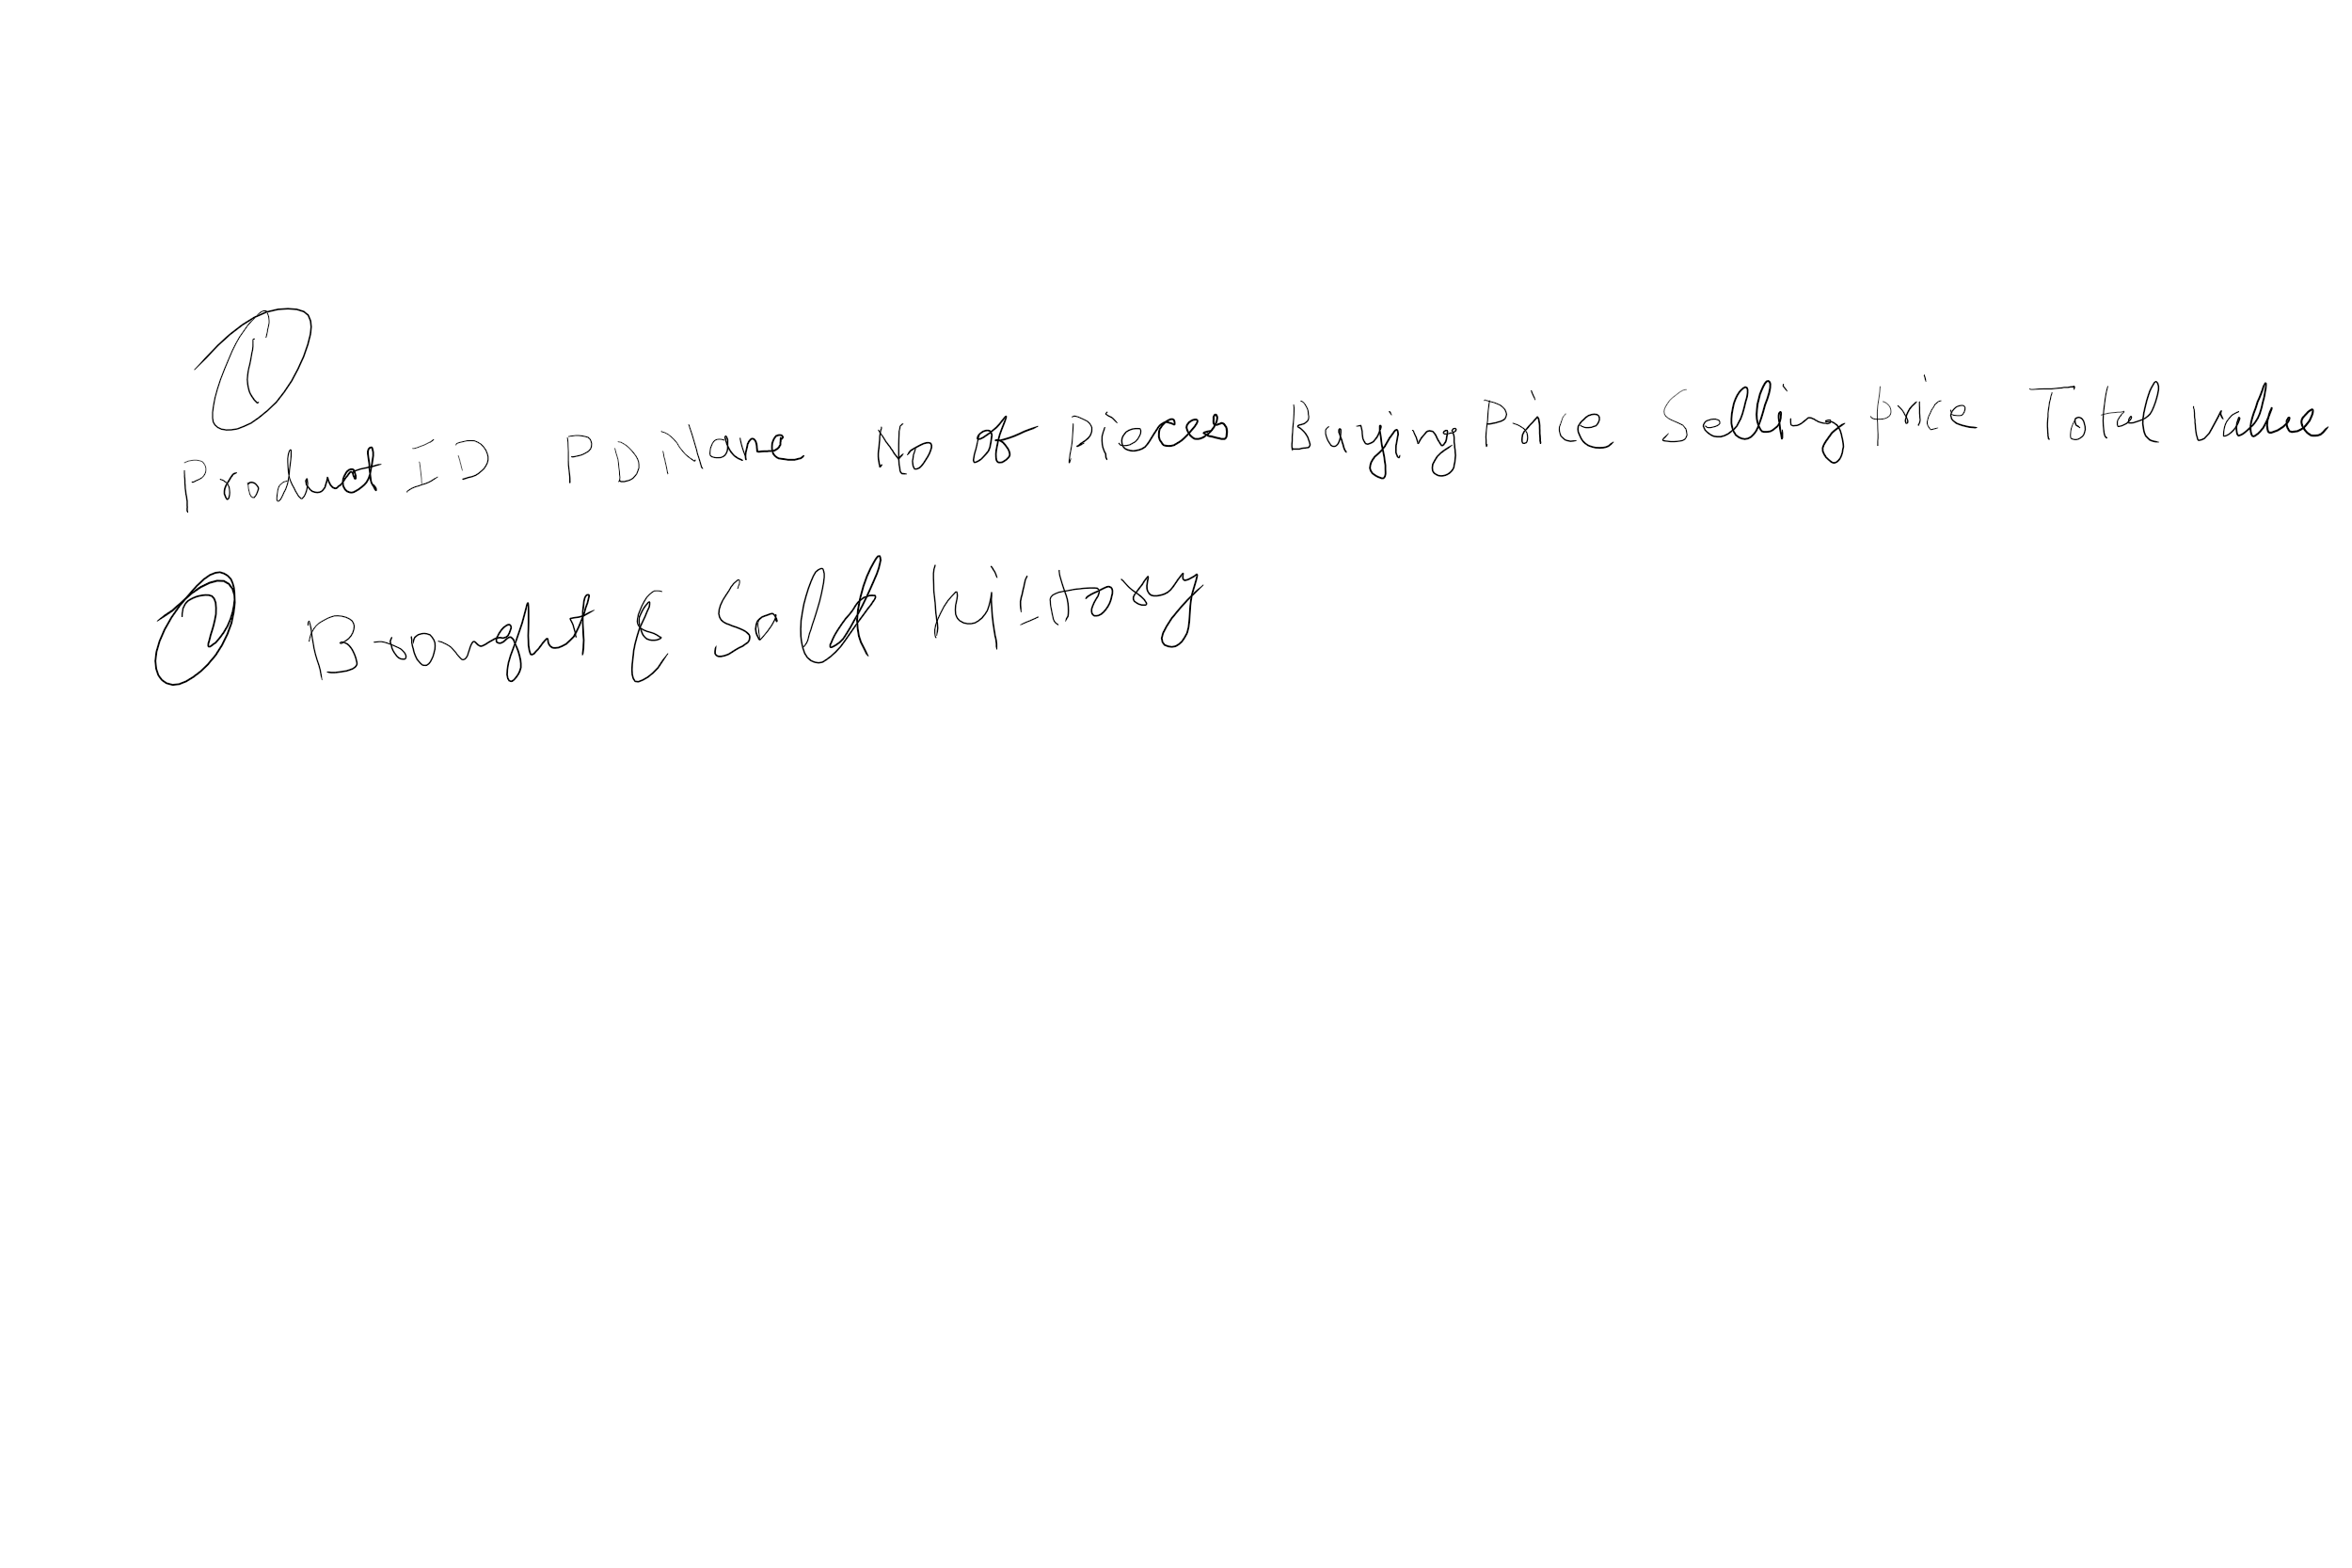 1
Product ID PD Name No of Pieces Buying Price Selling price Total value
2 Bought & Sold history